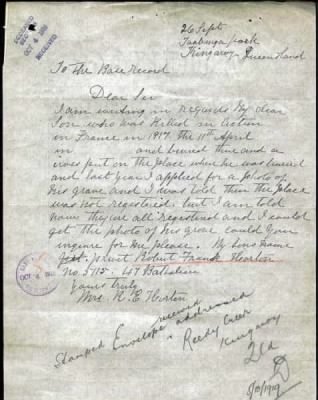 26 Sept
Taabinga park
Kingaroy Queensland
OCT 4 1919
RECEIVED
To The Base Record
Dear Sir
I am writing in regards My dear
Son who was killed in action
in France in 1917 the 11th April
in and buried thir and a
cross put on the place wher he was buried
and last year I applied for a photo of
his grave and I was told then the place
was not registered. but I am told
now they are all registered and I could
get the photo of his grave could your
inquire for me please. My sons name
privet Robert Frank Horton
No 5715. 47 Battalion
Yours truly
Mrs. R. E. Horton
Stamped Envelope addressed
Reedy Creek
Kingaroy
Qld
8/10/1919